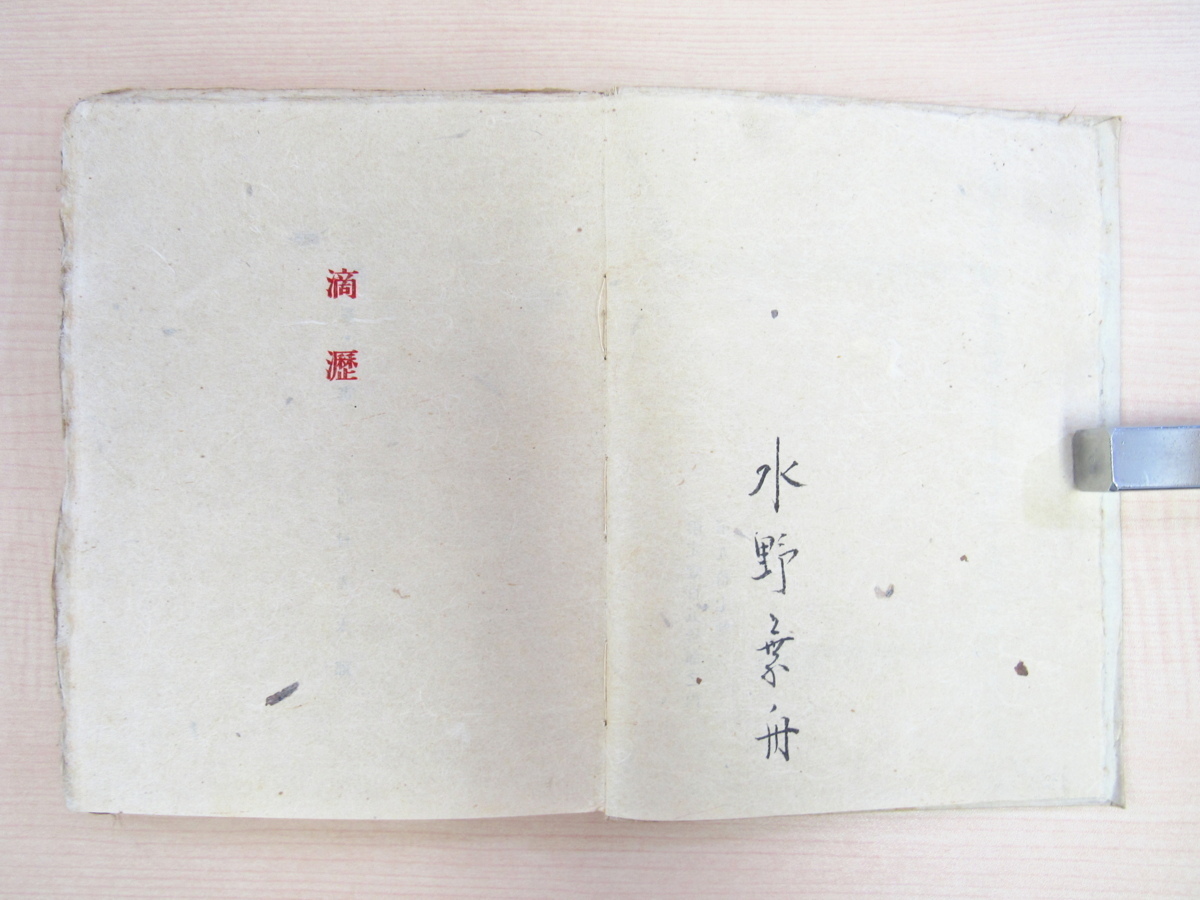 水野葉舟
滴瀝